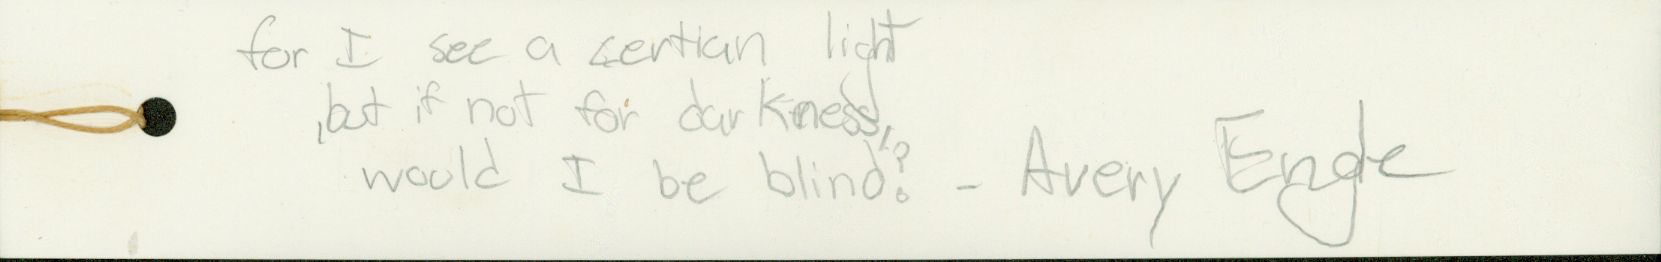 for I see a certian light
,but if not for darkness,
would I be blind? - Avery Engle